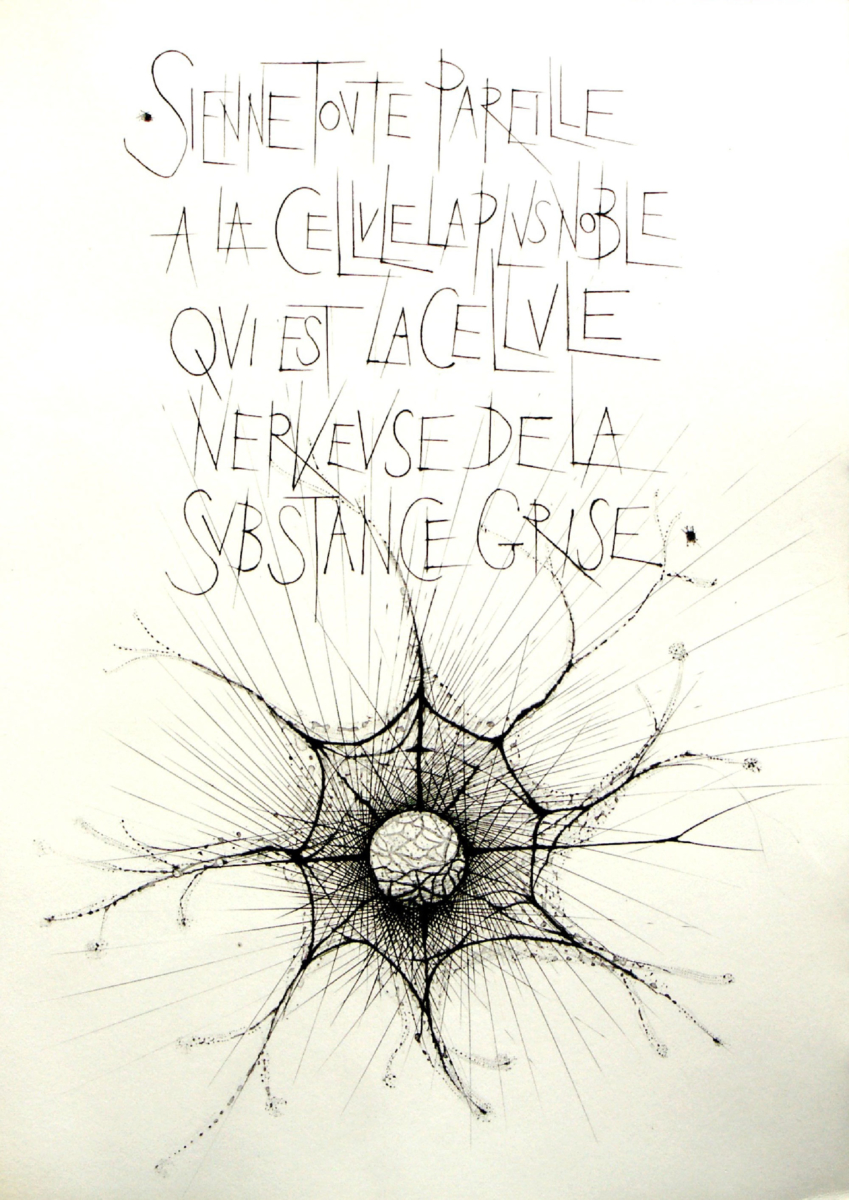 SIENNE TOVTE PAREILLE
A LA CELLVLE LA PLVS NOBLE
QVI EST LA CELLVLE
NERVEVSE DE LA
SVBSTANCE GRISE